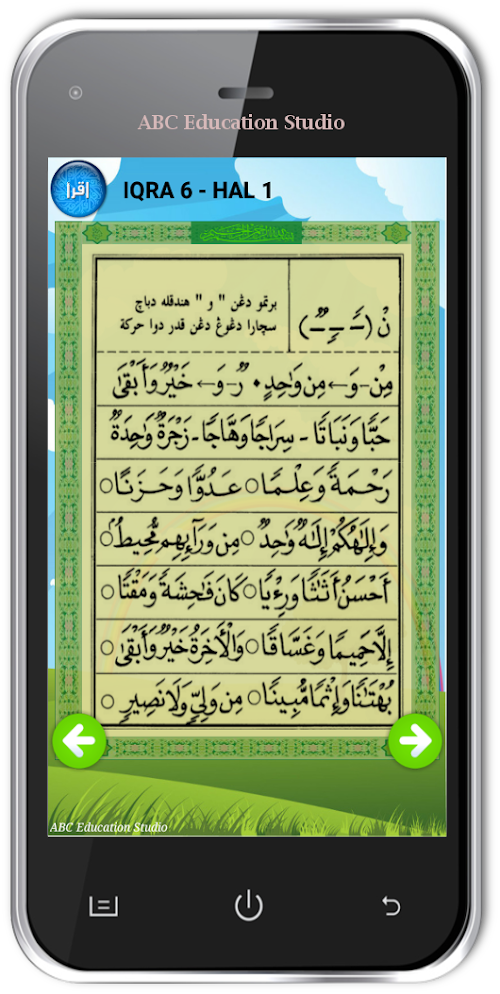 ABC Education Studio
اقرا
IQRA 6 - HAL 1
نْ (ــًـ ــٍـ ــٌـ)
برتمو دڠن " و " هندقله دباچ
سچارا دغوڠ دڠن قدر دوا حركة
مِنْ-وَ ← مِنْ وَاحِدٍ • رٌ-وَ ← خَيْرٌ وَأَبْقَىٰ
حَبًّا وَنَبَاتًا - سِرَاجًا وَهَّاجًا - زَجْرَةٌ وَاحِدَةٌ
رَحْمَةً وَعِلْمًا ○ عَدُوًّا وَحَزَنًا ○
وَإِلَٰهُكُمْ إِلَٰهٌ وَاحِدٌ ○ مِن وَرَآئِهِم مُّحِيطٌ ○
أَحْسَنُ أَثَٰثًا وَرِءْيًا ○ كَانَ فَٰحِشَةً وَمَقْتًا ○
إِلَّا حَمِيمًا وَغَسَّاقًا ○ وَالْأَخِرَةُ خَيْرٌ وَأَبْقَىٰ ○
بُهْتَٰنًا وَإِثْمًا مُّبِينًا ○ مِن وَلِيٍّ وَلَا نَصِيرٍ ○
ABC Education Studio